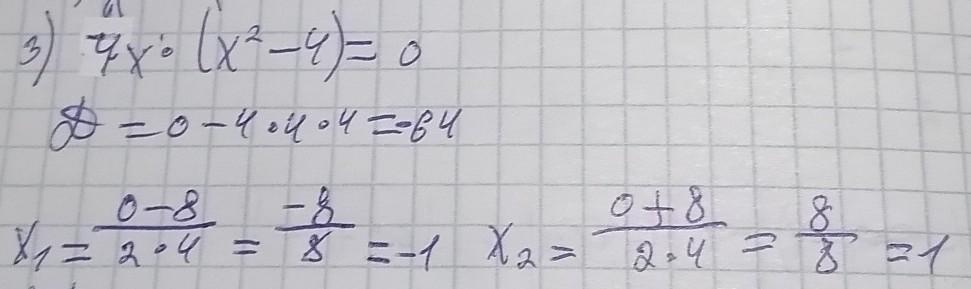 3) 4x·(x²-4)=0
D=0-4·4·4=-64
x₁=(0-8)/(2·4)=(-8)/8=-1 x₂=(0+8)/(2·4)=8/8=1